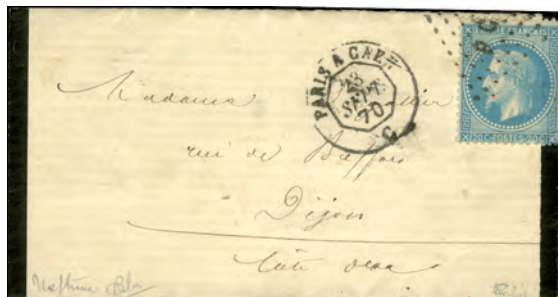 PARIS A CAEN
23
SEPT.
70
C
PC
E FRANÇAIS
20C POSTES 20C
Madame
rue de Buffon
Dijon
Côte d'or
Neptune